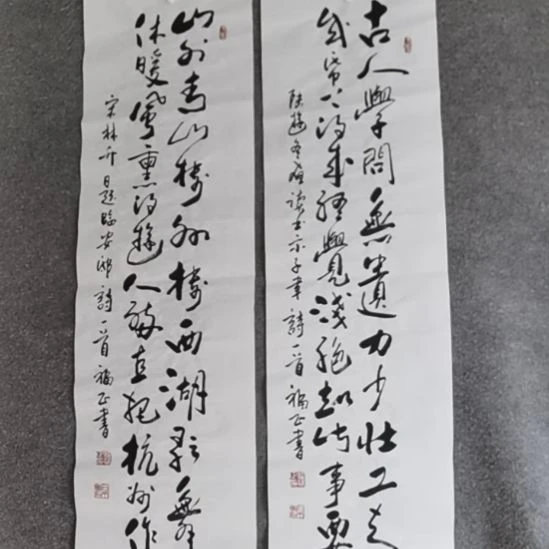 古人學問無遺力少壮工夫
成帋上得来終覺淺絶知此事要
陆游冬夜读书示子聿詩一首福正書
山外青山楼外楼西湖歌舞
休暖風熏得遊人醉直把杭州作
宋林升題临安邸詩一首福正書